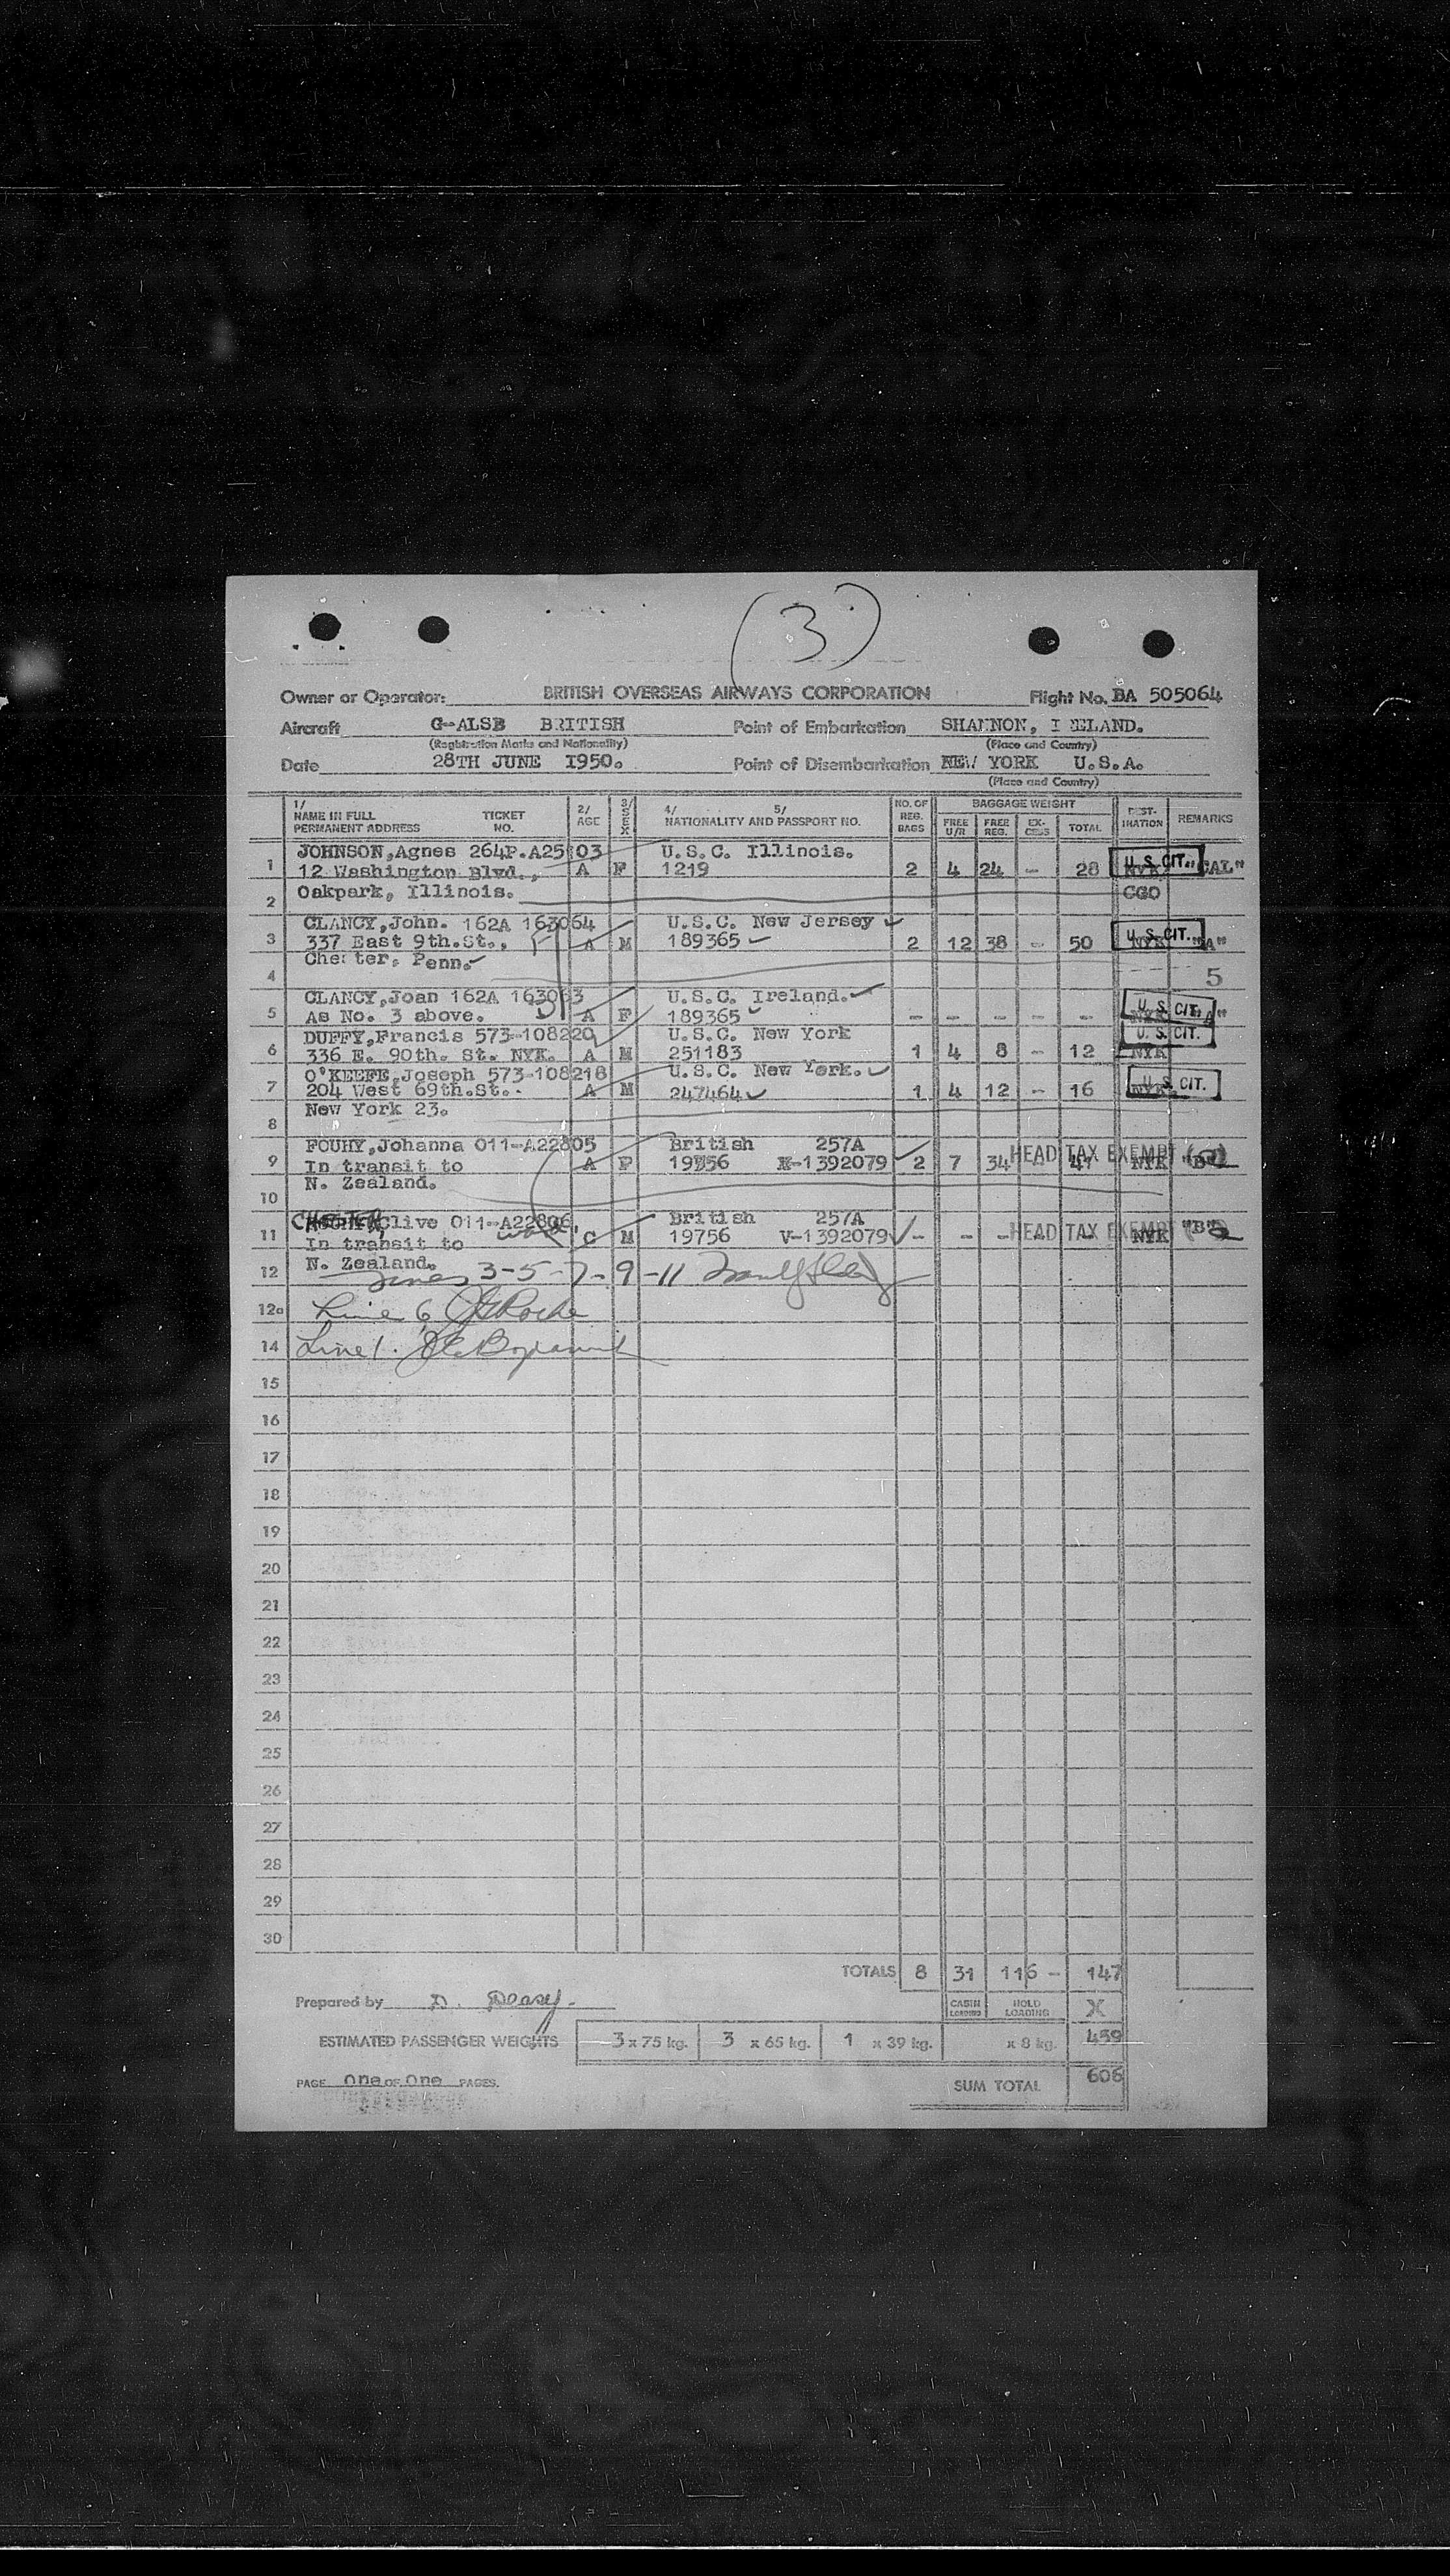 (3)
Owner or Operator: BRITISH OVERSEAS AIRWAYS CORPORATION Flight No. BA 505064
Aircraft G-ALSB BRITISH Point of Embarkation SHANNON, I ELAND.
(Registration Marks and Nationality) (Place and Country)
Date 28TH JUNE 1950. Point of Disembarkation NEW YORK U.S.A.
(Place and Country)
1/ NAME IN FULL PERMANENT ADDRESS TICKET NO. 2/ AGE 3/ SEX 4/ 5/ NATIONALITY AND PASSPORT NO. NO. OF REG. BAGS BAGGAGE WEIGHT FREE U/R FREE REG. EX-CESS TOTAL DEST-INATION REMARKS
JOHNSON,Agnes 264P.A25103 U.S.C. Illinois.
1 12 Washington Blvd., A F 1219 2 4 24 - 28 NYK U.S. CIT. "CAL"
2 Oakpark, Illinois. CGO
CLANCY,John. 162A 163064 U.S.C. New Jersey
3 337 East 9th.St., A M 189365 2 12 38 - 50 NYK U.S. CIT. "A"
Chester, Penn.
4 5
CLANCY,Joan 162A 163063 U.S.C. Ireland.
5 As No. 3 above. A F 189365 - - - - - NYK U.S. CIT. "A"
DUFFY,Francis 573-108220 U.S.C. New York
6 336 E. 90th. St. NYK. A M 251183 1 4 8 - 12 NYK U.S. CIT.
O'KEEFE,Joseph 573-108218 U.S.C. New York.
7 204 West 69th.St. A M 247464 1 4 12 - 16 NYK U.S. CIT.
New York 23.
8
FOUHY,Johanna 011-A22805 British 257A
9 In transit to A F 19756 K-1392079 2 7 34 - 41 NYK "B" HEAD TAX EXEMPT
N. Zealand.
10
Clive 011-A22806 British 257A
11 In transit to C M 19756 V-1392079 - - - - - NYK "B" HEAD TAX EXEMPT
12 N. Zealand.
Lines 3-5-7-9-11
12a Line 6 Roche
14 Line 1.
15
16
17
18
19
20
21
22
23
24
25
26
27
28
29
30
TOTALS 8 31 116 - 147
Prepared by D. Deasy. CABIN LOADING HOLD LOADING X
ESTIMATED PASSENGER WEIGHTS 3 x 75 kg. 3 x 65 kg. 1 x 39 kg. x 8 kg. 459
PAGE One OF One PAGES. SUM TOTAL 606